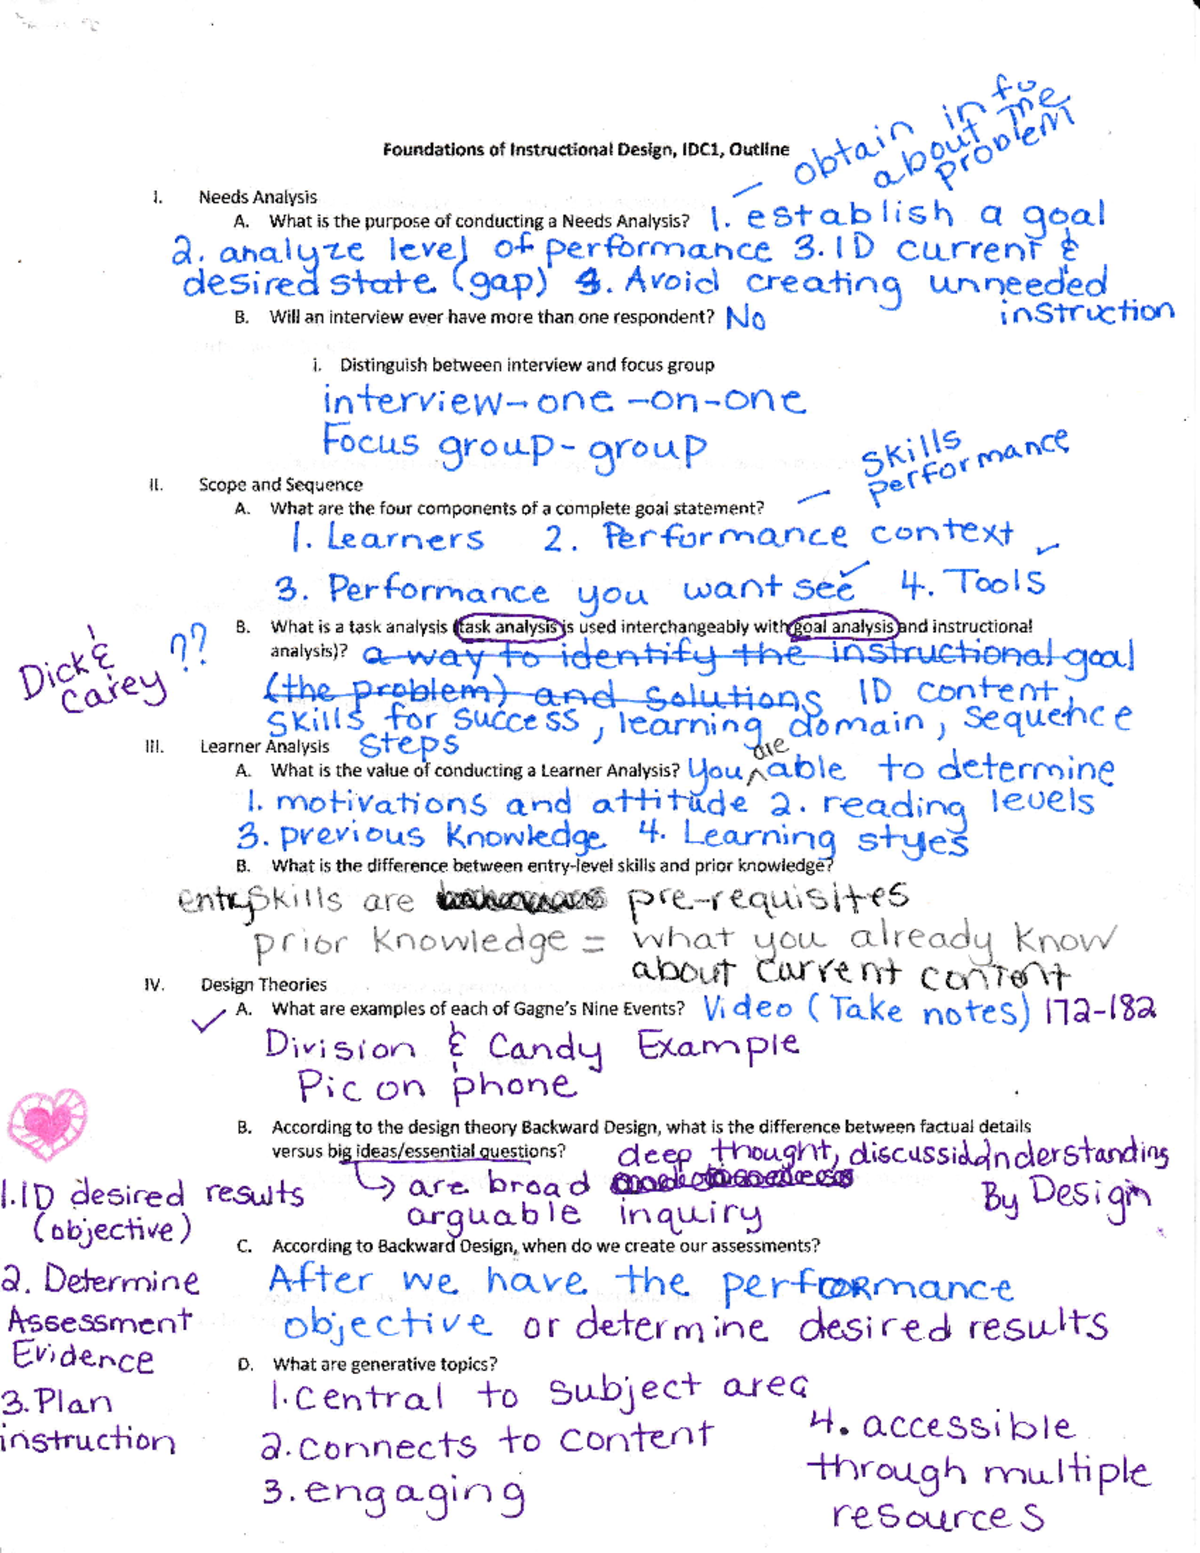 obtain info
about the
problem
Foundations of Instructional Design, IDC1, Outline
I. Needs Analysis
A. What is the purpose of conducting a Needs Analysis? 1. establish a goal
2. analyze level of performance 3. ID current &
desired state (gap) 4. Avoid creating unneeded
instruction
B. Will an interview ever have more than one respondent? No
i. Distinguish between interview and focus group
interview - one - on - one
Focus group - group
skills
performance
II. Scope and Sequence
A. What are the four components of a complete goal statement?
1. Learners 2. Performance context
3. Performance you want see 4. Tools
B. What is a task analysis (task analysis is used interchangeably with goal analysis and instructional
analysis)? a way to identify the instructional goal
(the problem) and solutions ID content,
skills for success, learning domain, sequence
steps
Dick &
Carey ??
III. Learner Analysis
A. What is the value of conducting a Learner Analysis? You are able to determine
1. motivations and attitude 2. reading levels
3. previous knowledge 4. Learning styes
B. What is the difference between entry-level skills and prior knowledge?
entry skills are pre-requisites
prior knowledge = what you already know
about current content
IV. Design Theories
A. What are examples of each of Gagne's Nine Events? Video (Take notes) 172-182
Division & Candy Example
Pic on phone
B. According to the design theory Backward Design, what is the difference between factual details
versus big ideas/essential questions? deep thought, discussion
are broad
arguable inquiry
Understanding
By Design
1. ID desired results
(objective)
2. Determine
Assessment
Evidence
3. Plan
instruction
C. According to Backward Design, when do we create our assessments?
After we have the performance
objective or determine desired results
D. What are generative topics?
1. central to subject area
2. connects to content
3. engaging
4. accessible
through multiple
resources